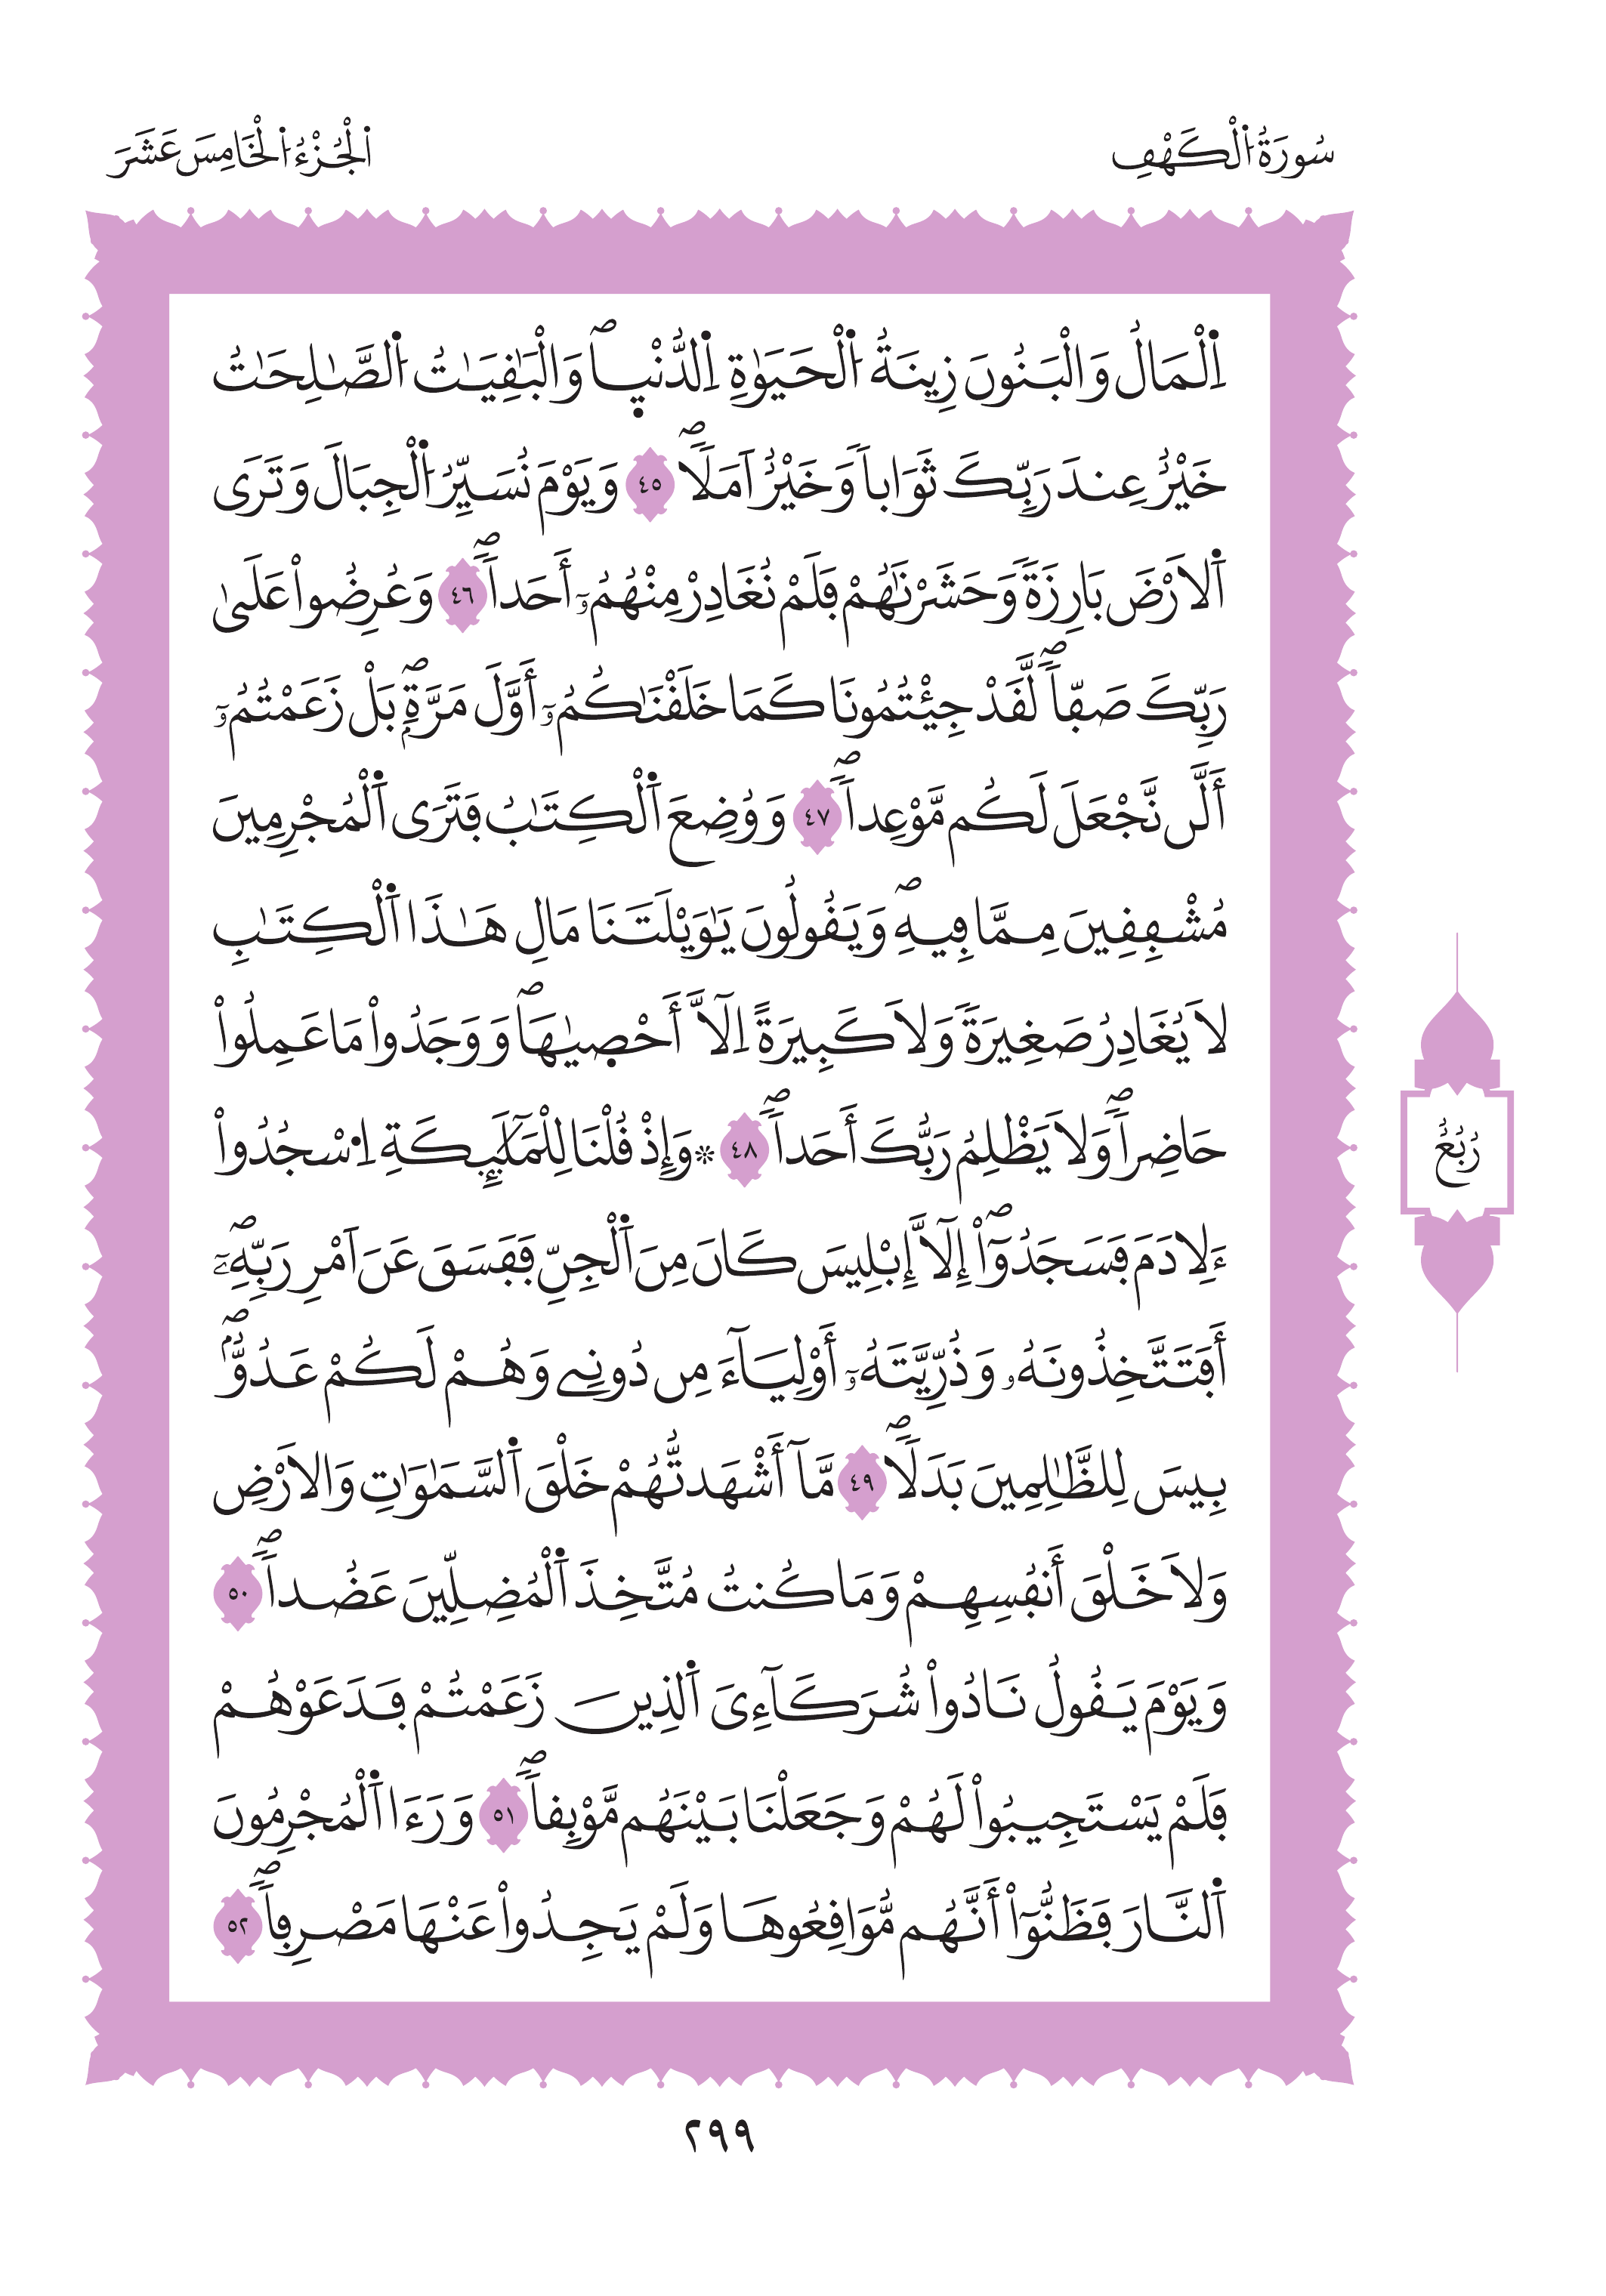 سُورَةُ اُ۬لْكَهْفِ
اَ۬لْجُزْءُ اُ۬لْخَامِسَ عَشَرَ
اِ۬لْمَالُ وَالْبَنُونَ زِينَةُ اُ۬لْحَيَوٰةِ اِ۬لدُّنْي۪اۖ وَالْبَٰفِيَٰتُ اُ۬لصَّٰلِحَٰتُ
خَيْرٌ عِندَ رَبِّكَ ثَوَاباٗ وَخَيْرٌ اَمَلاٗۖ ٤٥ وَيَوْمَ نُسَيِّرُ اُ۬لْجِبَالَ وَتَرَي
اَ۬لَارْضَ بَارِزَةٗ وَحَشَرْنَٰهُمْ فَلَمْ نُغَادِرْ مِنْهُمُۥٓ أَحَداٗۖ ٤٦ وَعُرِضُواْ عَلَيٰ
رَبِّكَ صَفّاٗۖ لَّقَدْ جِيْتُمُونَا كَمَا خَلَقْنَٰكُمُۥٓ أَوَّلَ مَرَّةِۢۖ بَلْ زَعَمْتُمُۥٓ
أَلَّن نَّجْعَلَ لَكُم مَّوْعِداٗۖ ٤٧ وَوُضِعَ اَ۬لْكِتَٰبُ فَتَرَي اَ۬لْمُجْرِمِينَ
مُشْفِقِينَ مِمَّا فِيهِۖ وَيَقُولُونَ يَٰوَيْلَتَنَا مَالِ هَٰذَا اَ۬لْكِتَٰبِ
لَا يُغَادِرُ صَغِيرَةٗ وَلَا كَبِيرَةً اِلَّآ أَحْص۪يٰهَاۖ وَوَجَدُواْ مَا عَمِلُواْ
حَاضِراٗۖ وَلَا يَظْلِمُ رَبُّكَ أَحَداٗۖ ٤٨ ۞ وَإِذْ قُلْنَا لِلْمَلَٰٓئِكَةِ اِ۟سْجُدُواْ
ءَلِادَمَ فَسَجَدُوٓاْۖ إِلَّآ إِبْلِيسَ كَانَ مِنَ اَ۬لْجِنِّ فَفَسَقَ عَنَ اَمْرِ رَبِّهِۦٓۖ
أَفَتَتَّخِذُونَهُۥ وَذُرِّيَّتَهُۥٓ أَوْلِيَآءَ مِن دُونِے وَهُمْ لَكُمْ عَدُوُّۢۖ
بِيسَ لِلظَّٰلِمِينَ بَدَلاٗۖ ٤٩ مَّآ أَشْهَدتُّهُمْ خَلْقَ اَ۬لسَّمَٰوَٰتِ وَالَارْضِ
وَلَا خَلْقَ أَنفُسِهِمْ وَمَا كُنتُ مُتَّخِذَ اَ۬لْمُضِلِّينَ عَضُداٗۖ ٥٠
وَيَوْمَ يَقُولُ نَادُواْ شُرَكَآءِيَ اَ۬لذِينَ زَعَمْتُمْ فَدَعَوْهُمْ
فَلَمْ يَسْتَجِيبُواْ لَهُمْ وَجَعَلْنَا بَيْنَهُم مَّوْبِقاٗۖ ٥١ وَرَءَا اَ۬لْمُجْرِمُونَ
اَ۬لنَّارَ فَظَنُّوٓاْ أَنَّهُم مُّوَاقِعُوهَا وَلَمْ يَجِدُواْ عَنْهَا مَصْرِفاٗۖ ٥٢
رُبُعُ
٢٩٩